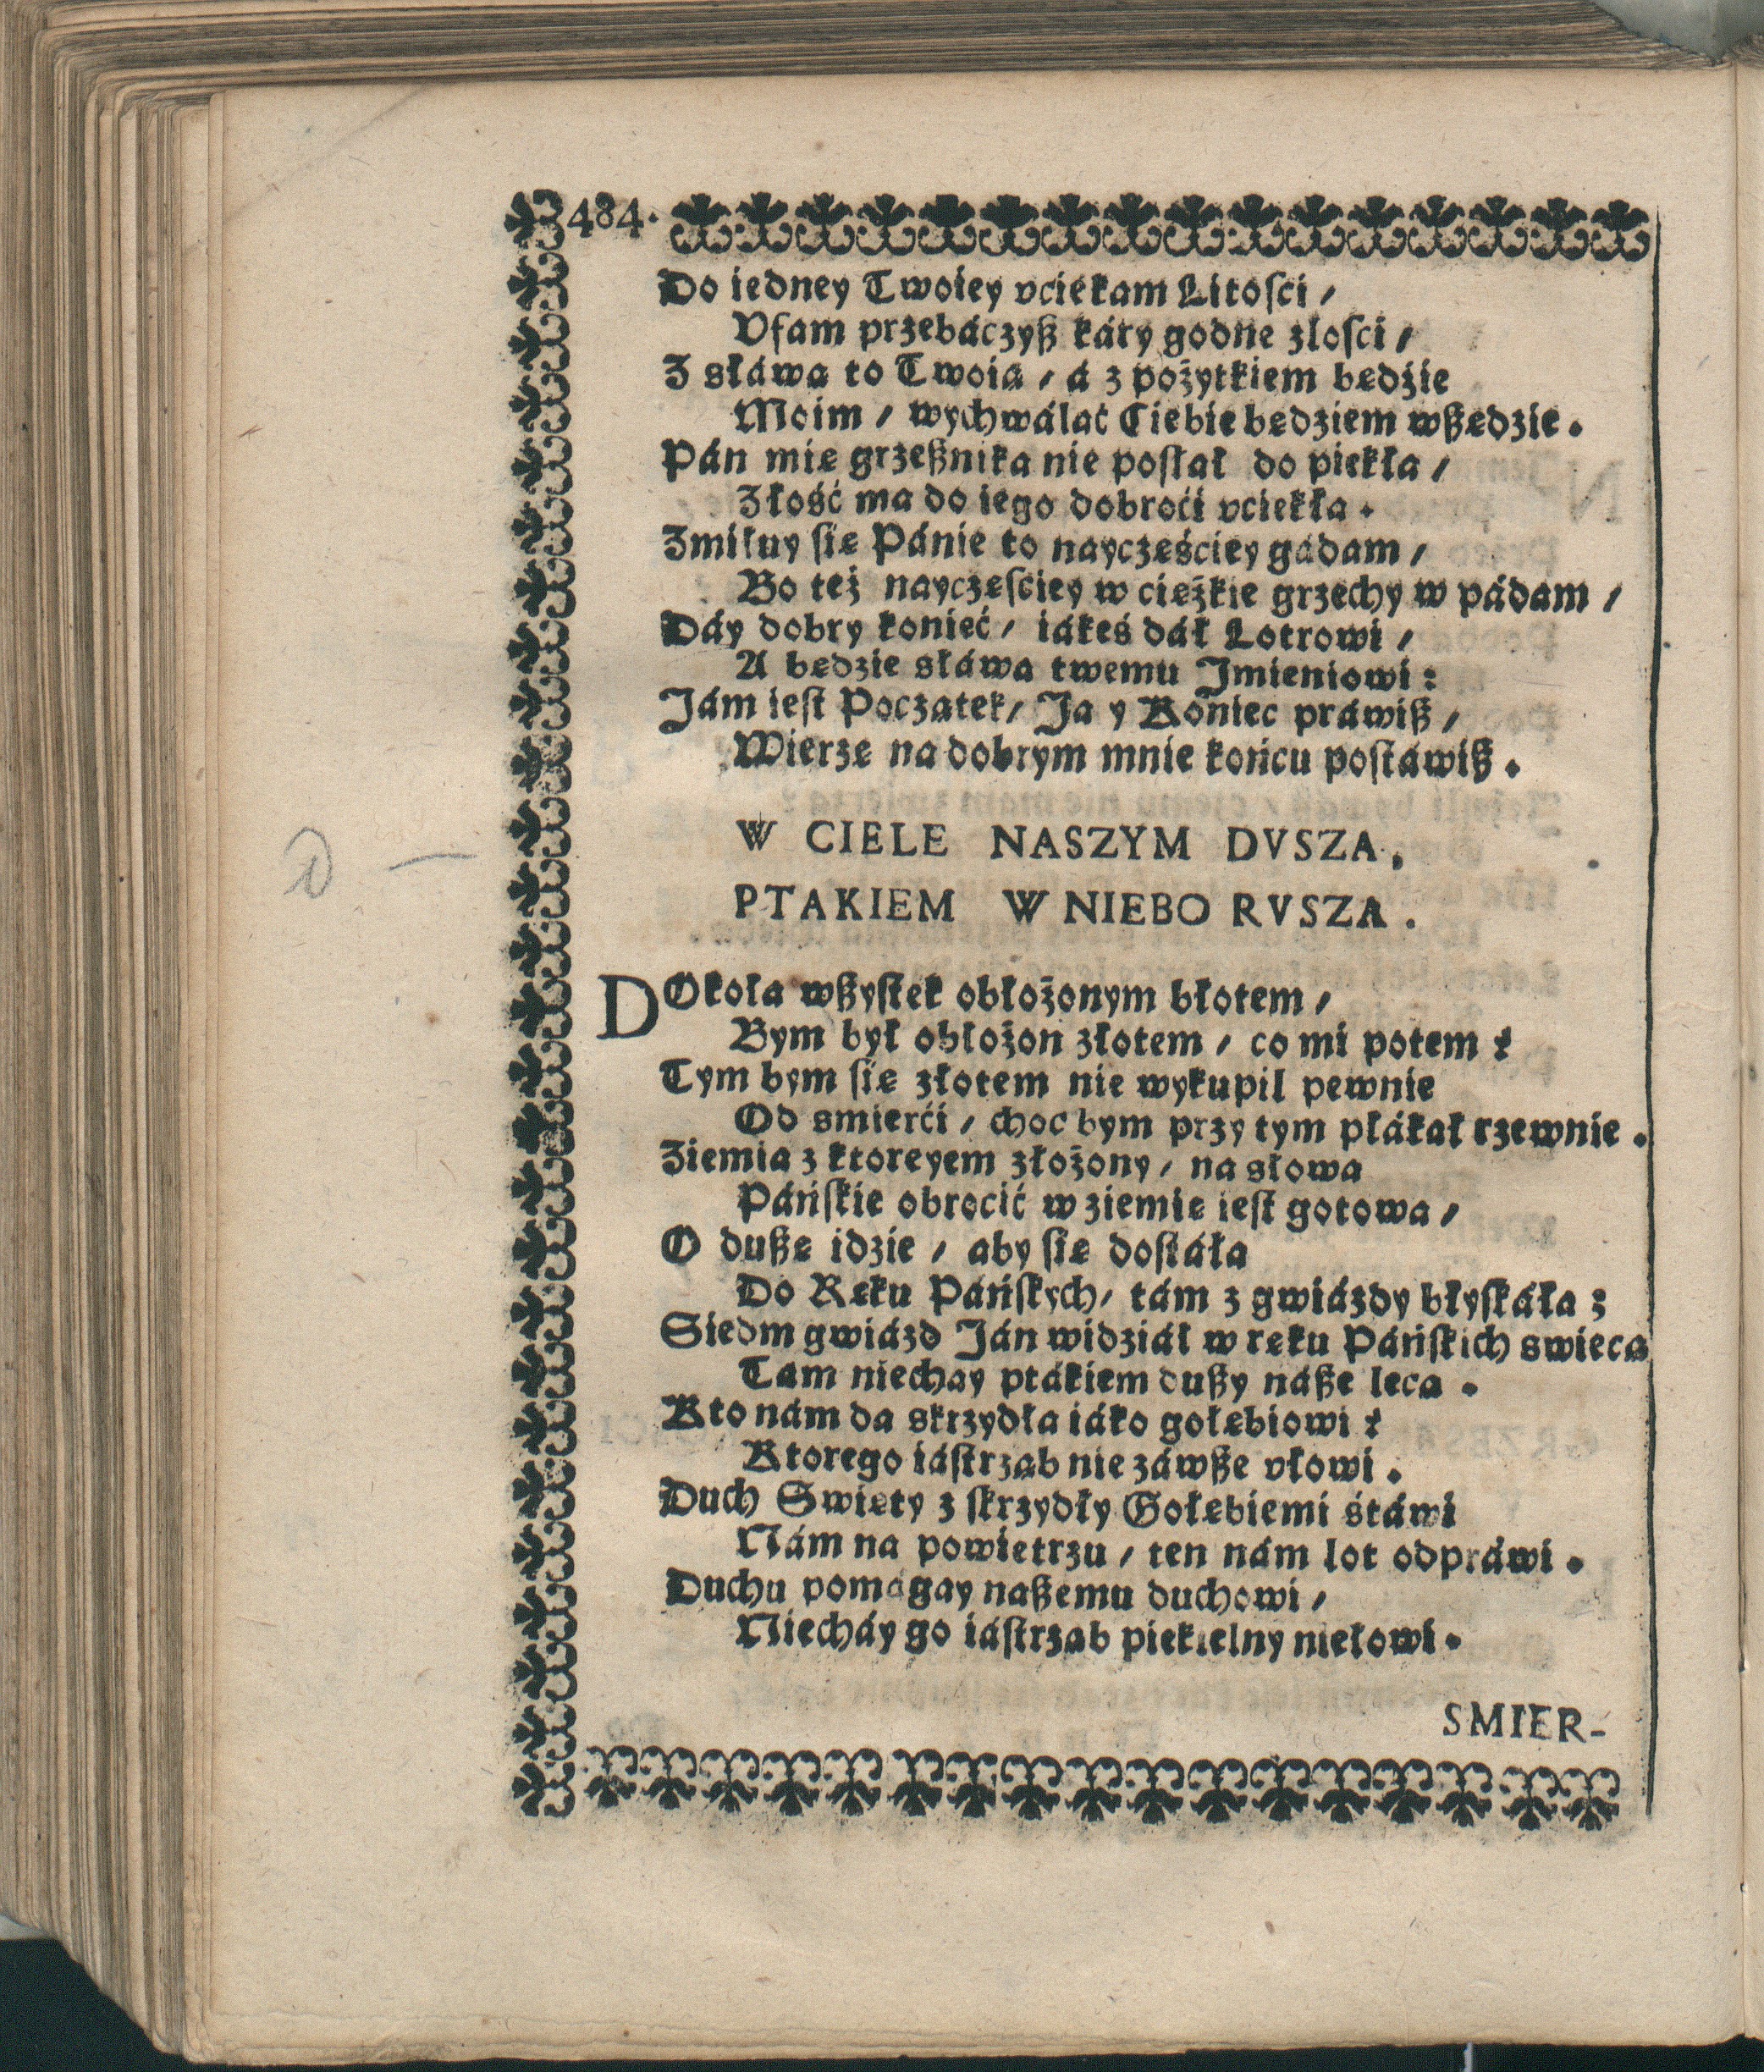 484.
Do iedney Twoiey vciekam Litośći /
Vfam przebáczyß káry godne złośći /
Z sławą to Twoią / á z pożytkiem będźie
Moim / wychwáláć Ciebie będziem wßędzie.
Pán mię grzeßniká nie posłał do piekłá /
Złość ma do iego dobroći vciekła.
Zmiłuy się Pánie to nayczęściey gadam /
Bo też nayczęściey w ciężkie grzechy w pádam /
Dáy dobry konieć / iákeś dáł Lotrowi /
A będzie sława twemu Jmieniowi:
Jám iest Początek / Ja y Koniec práwiß /
Wierzę na dobrym mnie końcu postáwiß.
W CIELE NASZYM DVSZA,
PTAKIEM W NIEBO RVSZA.
DOkoła wßystek obłożonym błotem /
Bym był obłożon złotem / co mi potem?
Tym bym się złotem nie wykupil pewnie
Od smierći / choc bym przy tym płákał rzewnie.
Ziemia z ktoreyem złożony / na słowa
Páńskie obrocić w ziemię iest gotowa /
O dußę idzie / aby się dostáła
Do Ręku Páńskych / tám z gwiázdy błyskáła:
Siedm gwiázd Ján widziáł w ręku Páńskich swiecą
Tam niechay ptákiem dußy náße lecą.
Kto nám da skrzydła iáko gołębiowi?
Ktorego iástrząb nie záwße vłowi.
Duch Swięty z skrzydły Gołębiemi stáwi
Nám na powietrzu / ten nám lot odpráwi.
Duchu pomagay naßemu duchowi /
Niecháy go iástrząb piekielny niełowi.
SMIER-